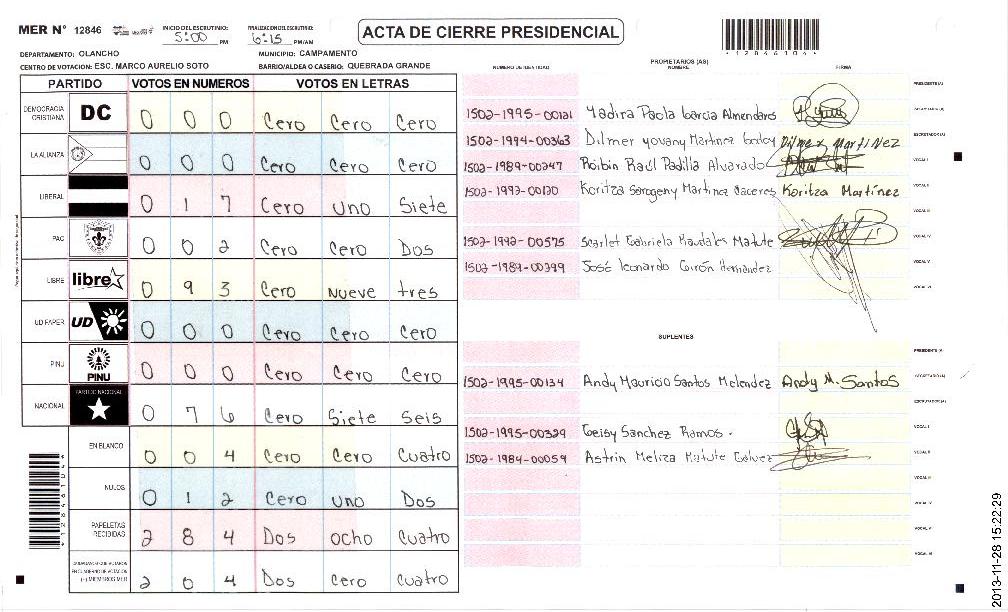 MER N° 12846
INICIO DEL ESCRUTINIO: 5:00 PM
FINALIZACION DEL ESCRUTINIO: 6:15 PM/AM
ACTA DE CIERRE PRESIDENCIAL
DEPARTAMENTO: OLANCHO
MUNICIPIO: CAMPAMENTO
CENTRO DE VOTACION: ESC. MARCO AURELIO SOTO
BARRIO/ALDEA O CASERIO: QUEBRADA GRANDE
PARTIDO VOTOS EN NUMEROS VOTOS EN LETRAS
DEMOCRACIA CRISTIANA DC 0 0 0 Cero Cero Cero
LA ALIANZA 0 0 0 Cero Cero Cero
LIBERAL 0 1 7 Cero uno Siete
PAC 0 0 2 Cero Cero Dos
LIBRE libre 0 9 3 Cero Nueve tres
UD FAPER UD 0 0 0 Cero Cero Cero
PINU PINU 0 0 0 Cero Cero Cero
NACIONAL PARTIDO NACIONAL 0 7 6 Cero Siete Seis
EN BLANCO 0 0 4 Cero Cero Cuatro
NULOS 0 1 2 Cero uno Dos
PAPELETAS RECIBIDAS 2 8 4 Dos ocho Cuatro
CIUDADANOS QUE VOTARON EN CUADERNO DE VOTACION (+) MIEMBROS MER 2 0 4 Dos Cero Cuatro
PROPIETARIOS (AS)
NUMERO DE IDENTIDAD NOMBRE FIRMA
PRESIDENTE (A)
1502-1995-00121 Yadira Paola Garcia Almendares SECRETARIO (A)
1502-1994-00363 Dilmer yovany Martinez Godoy Dilmer Martinez ESCRUTADOR (A)
1502-1989-00247 Roibin Raúl Padilla Alvarado VOCAL I
1502-1992-00120 Koritza Sarogeny Martinez Caceres Koritza Martínez VOCAL II
VOCAL III
1502-1992-00575 Scarlet Gabriela Raudales Matute VOCAL IV
1502-1989-00399 José Leonardo Girón Hernandez VOCAL V
VOCAL VI
SUPLENTES
PRESIDENTE (A)
1502-1995-00134 Andy Mauricio Santos Melendez Andy M. Santos SECRETARIO (A)
ESCRUTADOR (A)
1502-1995-00329 Geisy Sanchez Ramos. VOCAL I
1502-1984-00059 Astrin Meliza Matute Galvez VOCAL II
VOCAL III
VOCAL IV
VOCAL V
VOCAL VI
2013-11-28 15:22:29